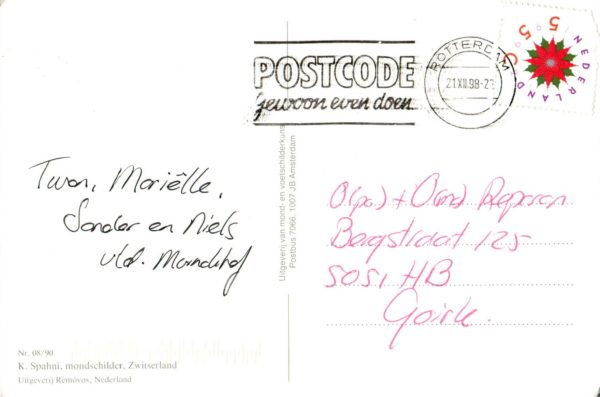 POSTCODE
gewoon even doen.
ROTTERDAM
21.XII.98-2
NEDERLAND
55
Twan, Mariëlle,
Sander en Niels
v/d.
Uitgeverij van mond- en voetschilderkunst
Postbus 7066, 1007 JB Amsterdam
O(pa) + Oma
Bergstraat 125
5051 HB
Goirle.
Nr. 08/90
K. Spahni, mondschilder, Zwitserland
Uitgeverij Removos, Nederland